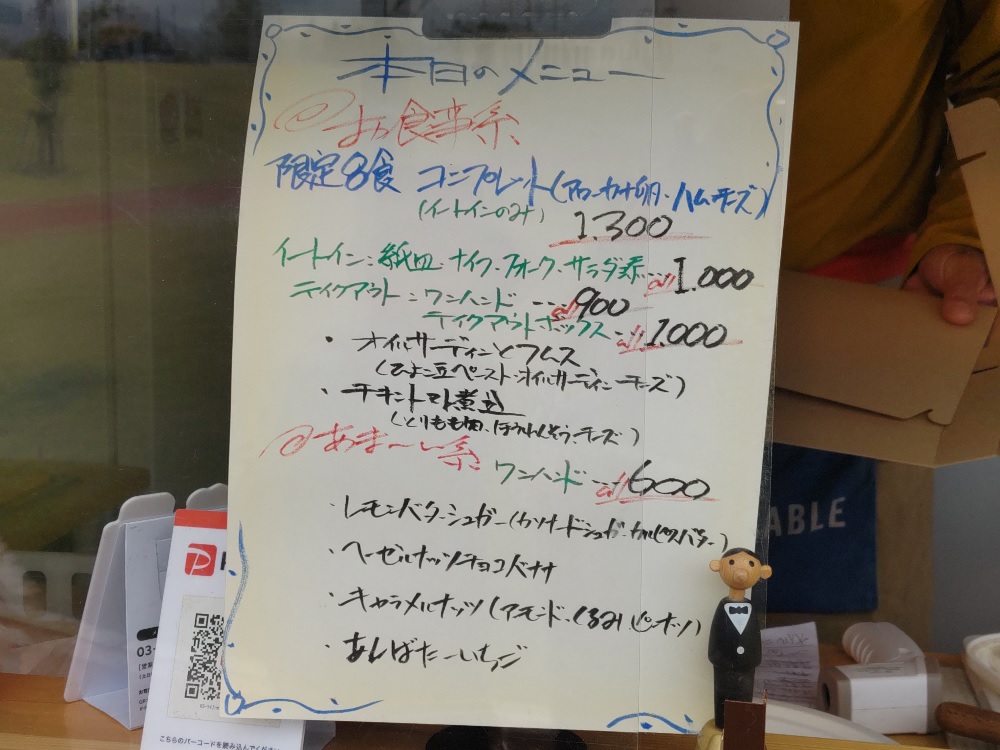 本日のメニュー
@お食事系
限定8食 コンプレット(アローカナ卵・ハム・チーズ)
(イートインのみ) 1.300
イートイン:紙皿・ナイフ・フォーク・サラダ添…all 1.000
テイクアウト:ワンハンド …all 900
テイクアウトボックス …all 1.000
・オイルサーディンとフムス
(ひよこ豆ペースト・オイルサーディン・チーズ)
・チキントマト煮込
(とりもも肉、ほうれんそう・チーズ)
@あま〜い系
ワンハンド …all 600
・レモンバターシュガー(カソナードシュガー・カルピスバター)
・ヘーゼルナッツチョコバナナ
・キャラメルナッツ(アーモンド・くるみ・ピーナッツ)
・あんばたーいちご
P
03-
こちらのバーコードを読み込んでください
ABLE